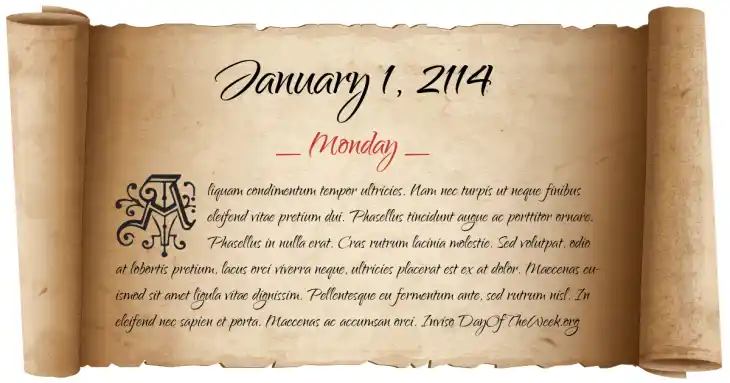 January 1, 2114
_ Monday _
Aliquam condimentum tempor ultricies. Nam nec turpis ut neque finibus
eleifend vitae pretium dui. Phasellus tincidunt augue ac porttitor ornare.
Phasellus in nulla erat. Cras rutrum lacinia molestie. Sed volutpat, odio
at lobortis pretium, lacus orci viverra neque, ultricies placerat est ex at dolor. Maecenas eu-
ismod sit amet ligula vitae dignissim. Pellentesque eu fermentum ante, sed rutrum nisl. In
eleifend nec sapien et porta. Maecenas ac accumsan orci. Inviso DayOfTheWeek.org